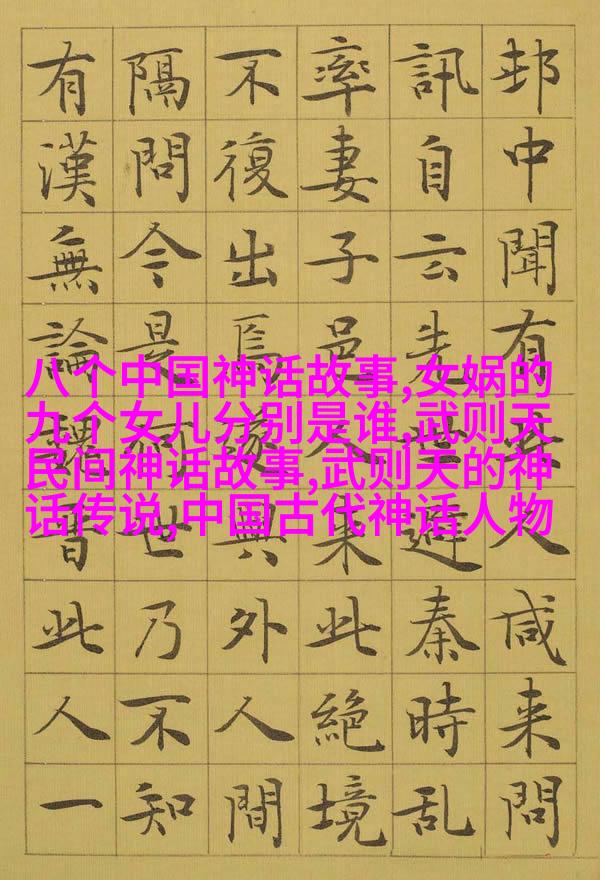 邨中聞有人咸来問
訊自云先世避秦時乱
率妻子邑人来此絶境
不復出焉遂與外人間
隔問今是何世乃不知
有漢無論魏晋此人一
八个中国神话故事,女娲的
九个女儿分别是谁,武则天
民间神话故事,武则天的神
话传说,中国古代神话人物